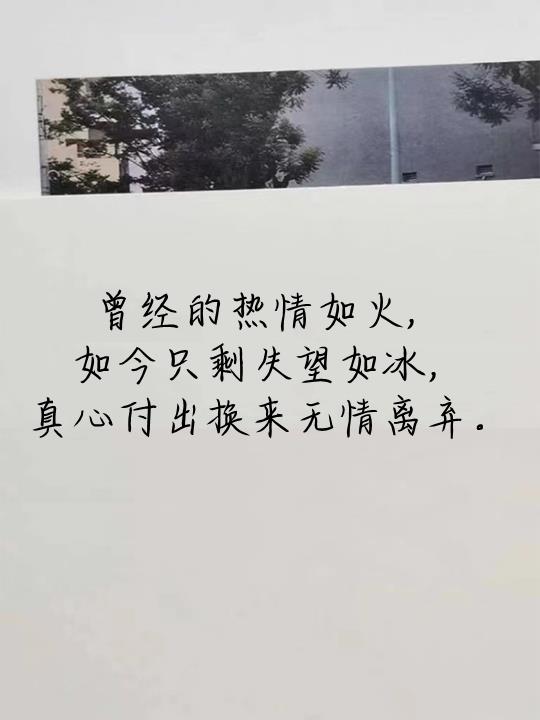 曾经的热情如火,
如今只剩失望如冰,
真心付出换来无情离弃。